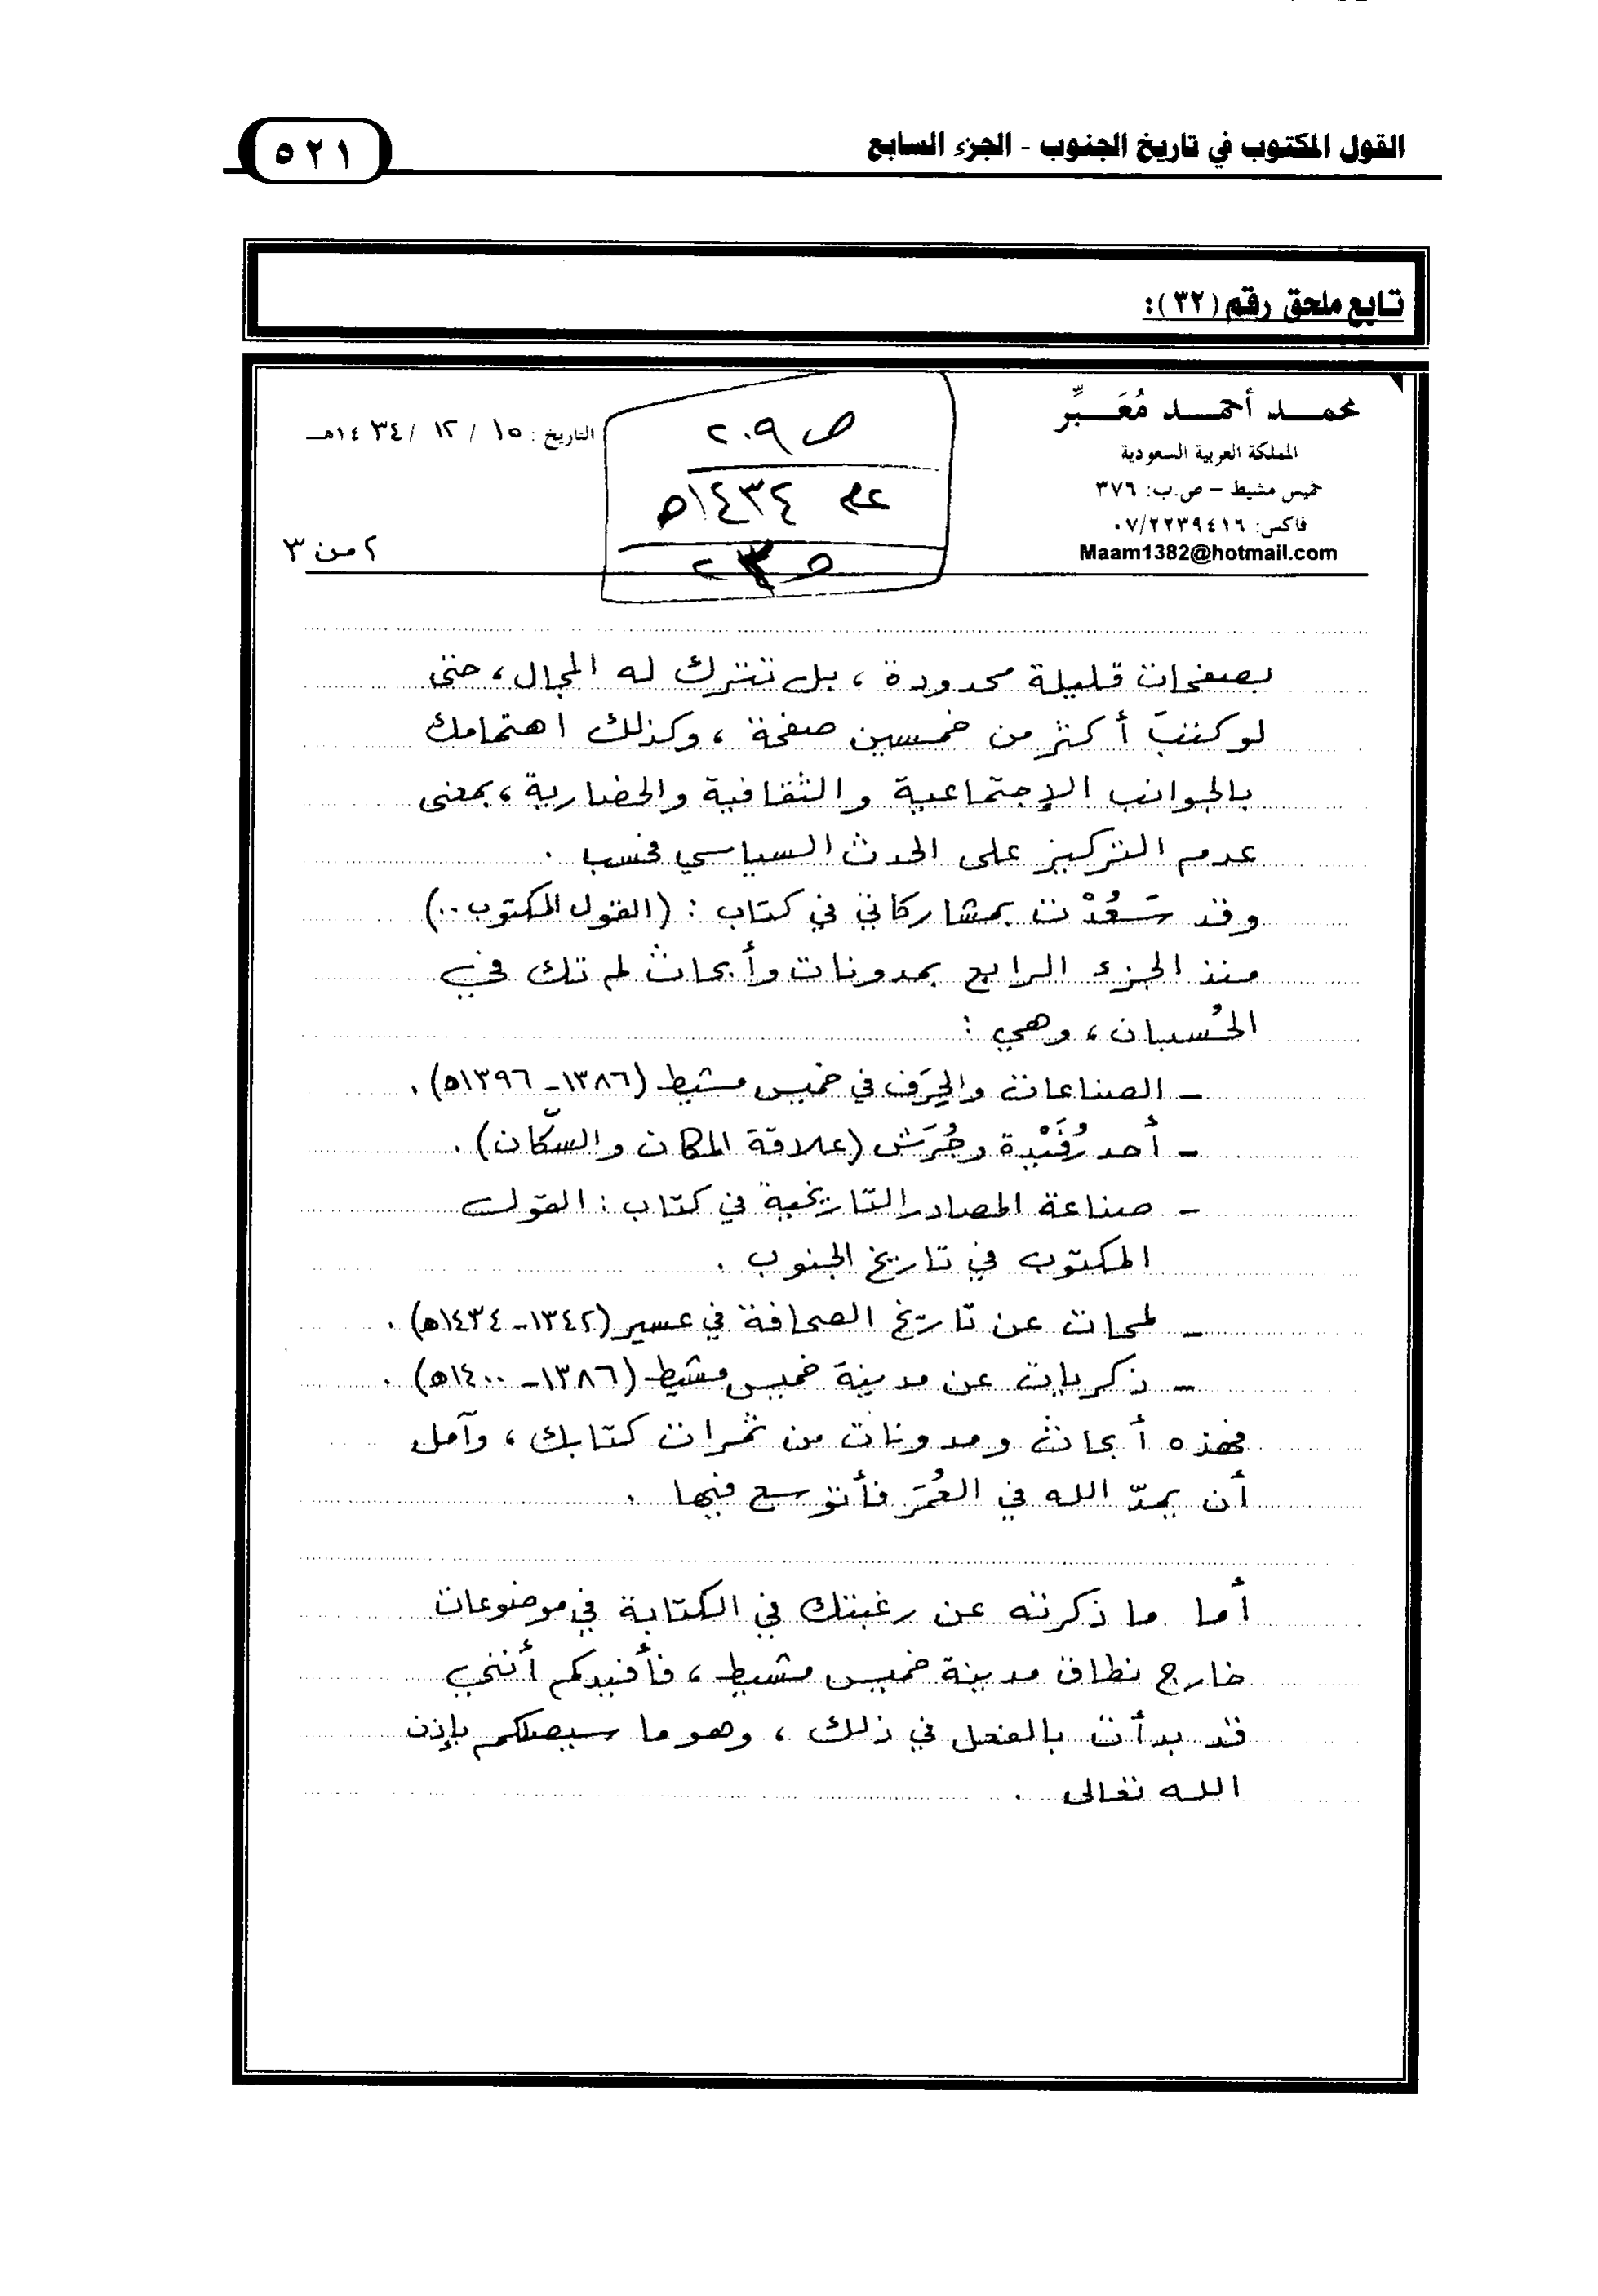 القول المكتوب في تاريخ الجنوب - الجزء السابع
٥٢١
تابع ملحق رقم (٣٢):
محمد أحمد مُعَبِّر
المملكة العربية السعودية
خميس مشيط - ص.ب: ٣٧٦
فاكس: ٠٧/٢٢٣٩٤١٦
Maam1382@hotmail.com
ص ٢٠٩
عام ١٤٣٤ه
ص ٢٣
التاريخ: ١٥ / ١٢ / ١٤٣٤هـ
٢ من ٣
بصفحات قليلة محدودة ، بل تترك له المجال، حتى
لو كتبَ أكثر من خمسين صفحة ، وكذلك اهتمامك
بالجوانب الإجتماعية والثقافية والحضارية ، بمعنى
عدم التركيز على الحدث السياسي فحسب .
وقد سَعُدْت بمشاركاتي في كتاب : (القول المكتوب ..)
منذ الجزء الرابع بمدونات وأبحاث لم تك في
الحُسبان ، وهي :
- الصناعات والحِرَف في خميس مشيط (١٣٨٦ - ١٣٩٦ه) .
- أحد رُفَيْدة وجُرَش (علاقة المكان والسكّان) .
- صناعة المصادر التّاريخية في كتاب : القول
المكتوب في تاريخ الجنوب .
- لمحات عن تاريخ الصحافة في عسير (١٣٤٢ - ١٤٣٤ه) .
- ذكريات عن مدينة خميس مشيط (١٣٨٦ - ١٤٠٠ه) .
فهذه أبحاث ومدونات من ثمرات كتابك ، وآمل
أن يمدّ الله في العُمَر فأتوسع فيها .
أما ما ذكرته عن رغبتك في الكتابة في موضوعات
خارج نطاق مدينة خميس مشيط ، فأفيدكم أنني
قد بدأت بالفعل في ذلك ، وهو ما سيصلكم بإذن
الله تعالى .